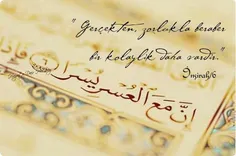 "Gerçekten, zorlukla beraber
bir kolaylık daha vardır."
İnşirah/6
إِنَّ مَعَ الْعُسْرِ يُسْرًا ٦ فَإِذَا